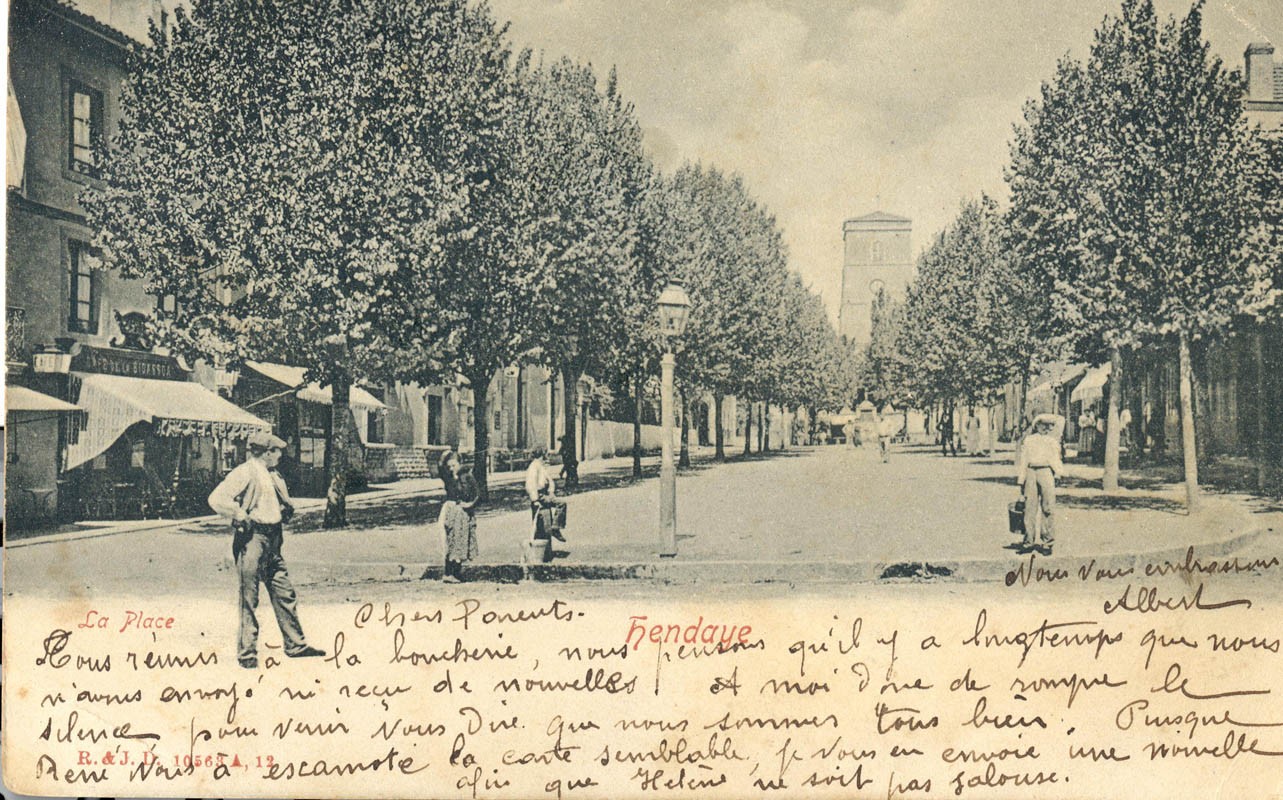 DE LA BIDASSOA
Nous vous embrassons
Albert
La Place
Hendaye
Chers Parents.
Tous réunis à la boucherie, nous pensons qu'il y a longtemps que nous
n'avons envoyé ni reçu de nouvelles. A moi donc de rompre le
silence pour venir vous dire que nous sommes tous bien. Puisque
René vous a escamoté la carte semblable, je vous en envoie une nouvelle
afin que Hélène ne soit pas jalouse.
R. & J. D. 10563 A, 12